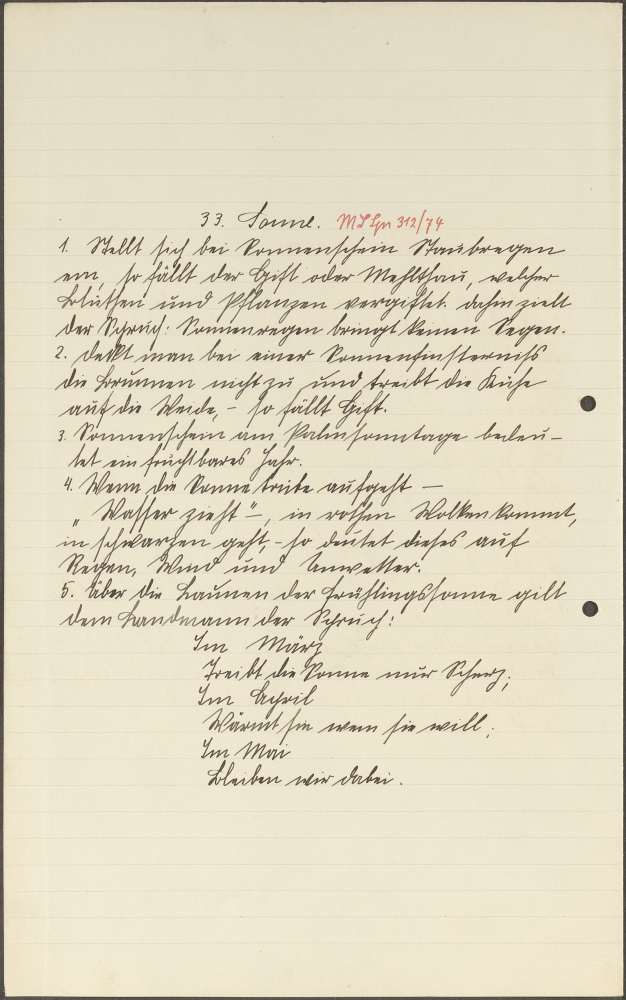 33. Sonne. MSGn 312/74
1. Stellt sich bei Sonnenschein Staubregen
ein, so fällt der Gift oder Mehlthau, welcher
Blüthen und Pflanzen vergiftet. dahin zielt
der Spruch: Sonnenregen bringt keinen Segen.
2. Deckt man bei einer Sonnenfinsterniss
die Brunnen nicht zu und treibt die Kühe
auf die Weide, – so fällt Gift.
3. Sonnenschein am Palmsonntage bedeu-
tet ein fruchtbares Jahr.
4. Wenn die Sonne trübe aufgeht –
"Wasser zieht" –, in rothen Wolken kommt,
in schwarzen geht, – so deutet dieses auf
Regen, Wind und Unwetter.
5. Über die Launen der Frühlingssonne gilt
dem Landmann der Spruch:
Im März
Treibt die Sonne nur Scherz;
Im April
Wärmt sie wem sie will;
Im Mai
Bleiben wir dabei.